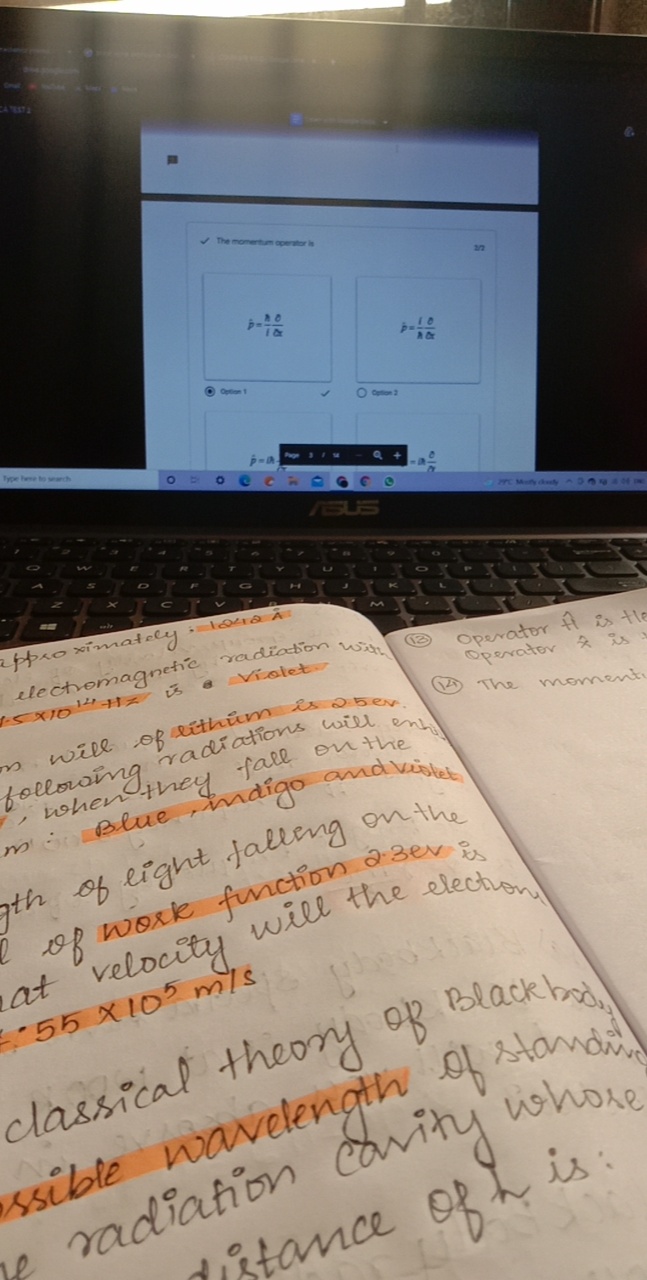 CA TEST 2
Gmail YouTube Maps
The momentum operator is
2/2
p̂ = ħ/i ∂/∂x
p̂ = i/ħ ∂/∂x
Option 1
Option 2
p̂ = iħ
= iħ ∂/
Page 3 / 14 − +
Type here to search
29°C Mostly cloudy
ASUS
Q W E R T Y U I O P
A S D F G H J K L
Z X C V M
approximately : 1240 Å
electromagnetic radiation with
.5 x10¹⁴ Hz is a Violet
will of lithium is 2.5ev.
following radiations will
, when they fall on the
m : Blue, indigo and violet
gth of light falling on the
l of work function 2.3ev is
at velocity will the electron
.55 X10⁵ m/s
classical theory of Blackbody
ssible wavelength of standing
radiation cavity whose
distance of L is :
(13) Operator Ĥ is the
Operator x̂ is
(14) The moment